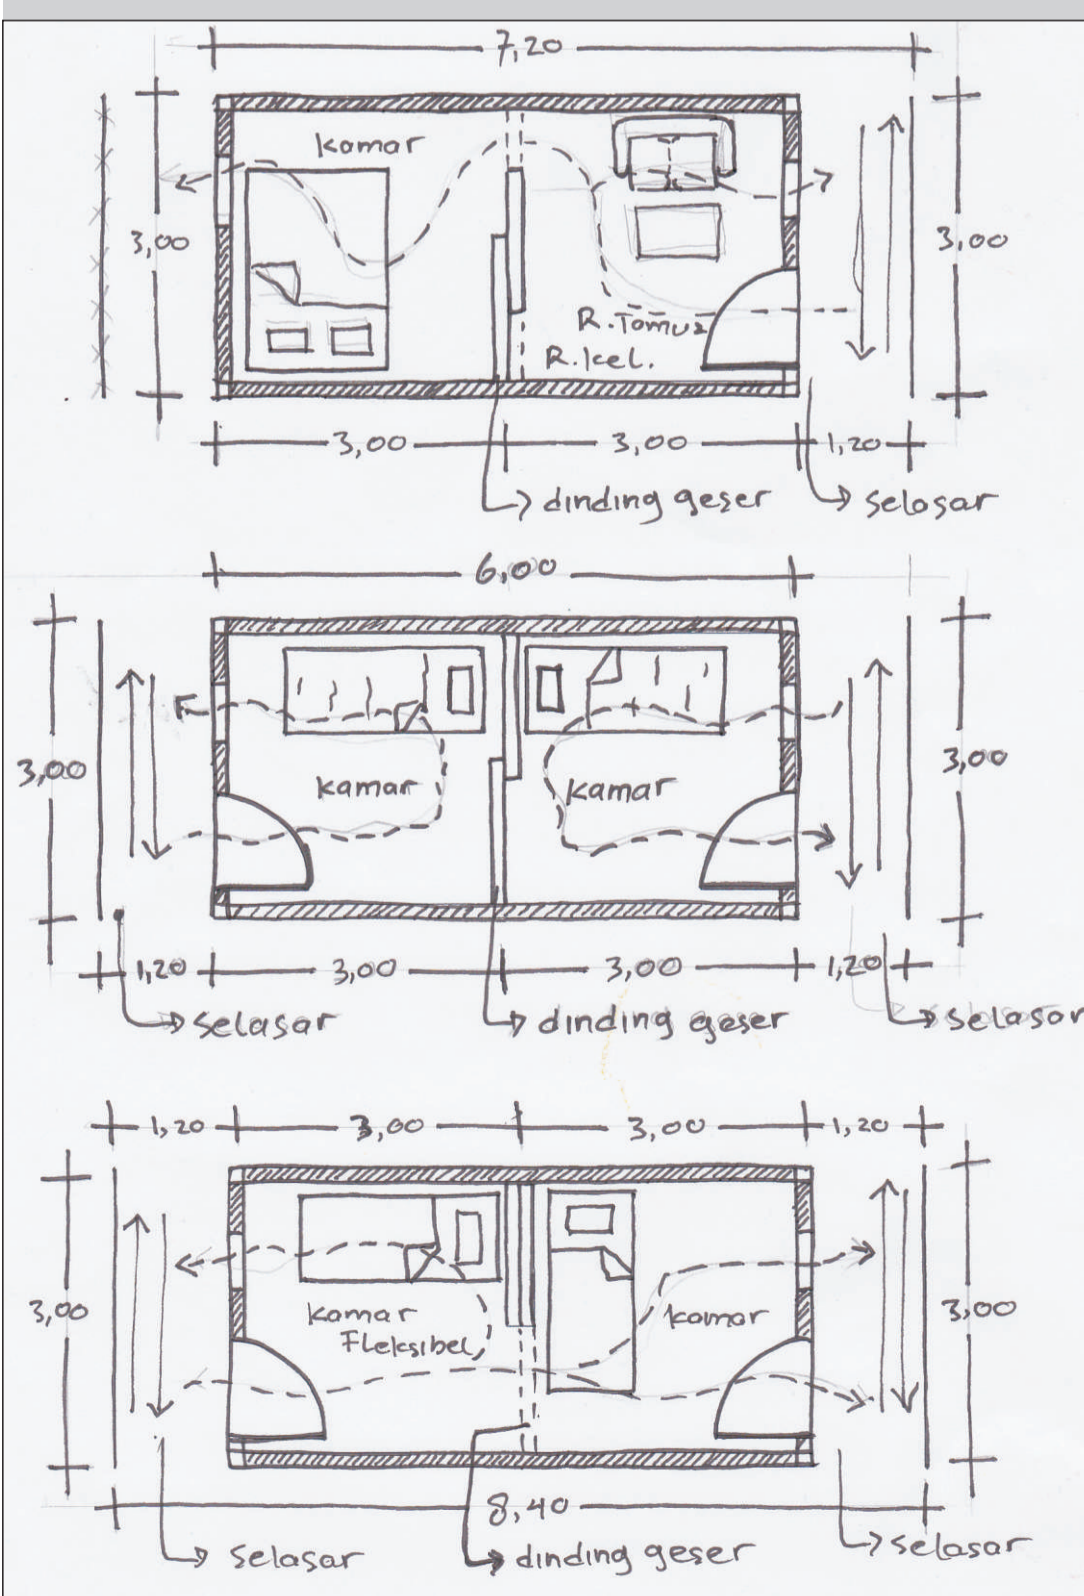 7,20
kamar
3,00
3,00
R. Tamu2
R. kel.
3,00
3,00
1,20
dinding geser
selasar
6,00
3,00
kamar
kamar
3,00
1,20
3,00
3,00
1,20
selasar
dinding geser
selasar
1,20
3,00
3,00
1,20
3,00
kamar
Fleksibel
kamar
3,00
8,40
selasar
dinding geser
selasar